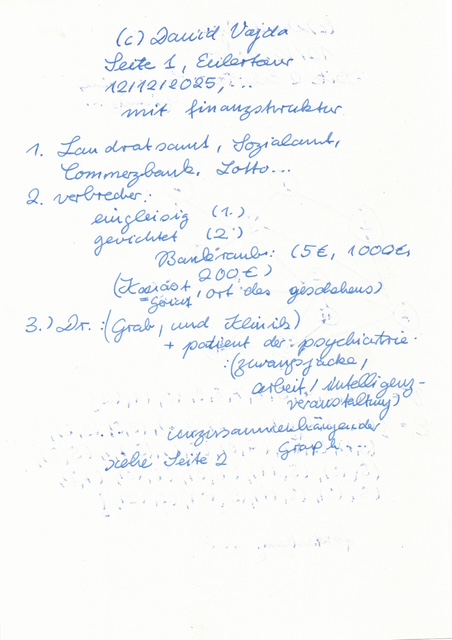 (c) David Vajda
Seite 1, Eulertour
12/12/2025, ...
mit finanzstruktur
1. Landratsamt, Sozialamt,
Commerzbank, Lotto...
2. verbrecher:
eingleisig (1.)
gerichtet (2.)
Bankraub: (5€, 1000€,
200€)
(Knast
= Gericht, ort des geschehens)
3.) Dr.: (Grab, und Klinik)
+ patient der psychiatrie.
: (zwangsjacke,
arbeit, intelligenz-
veranstaltung)
unzusammenhängender
Graph...
siehe Seite 2